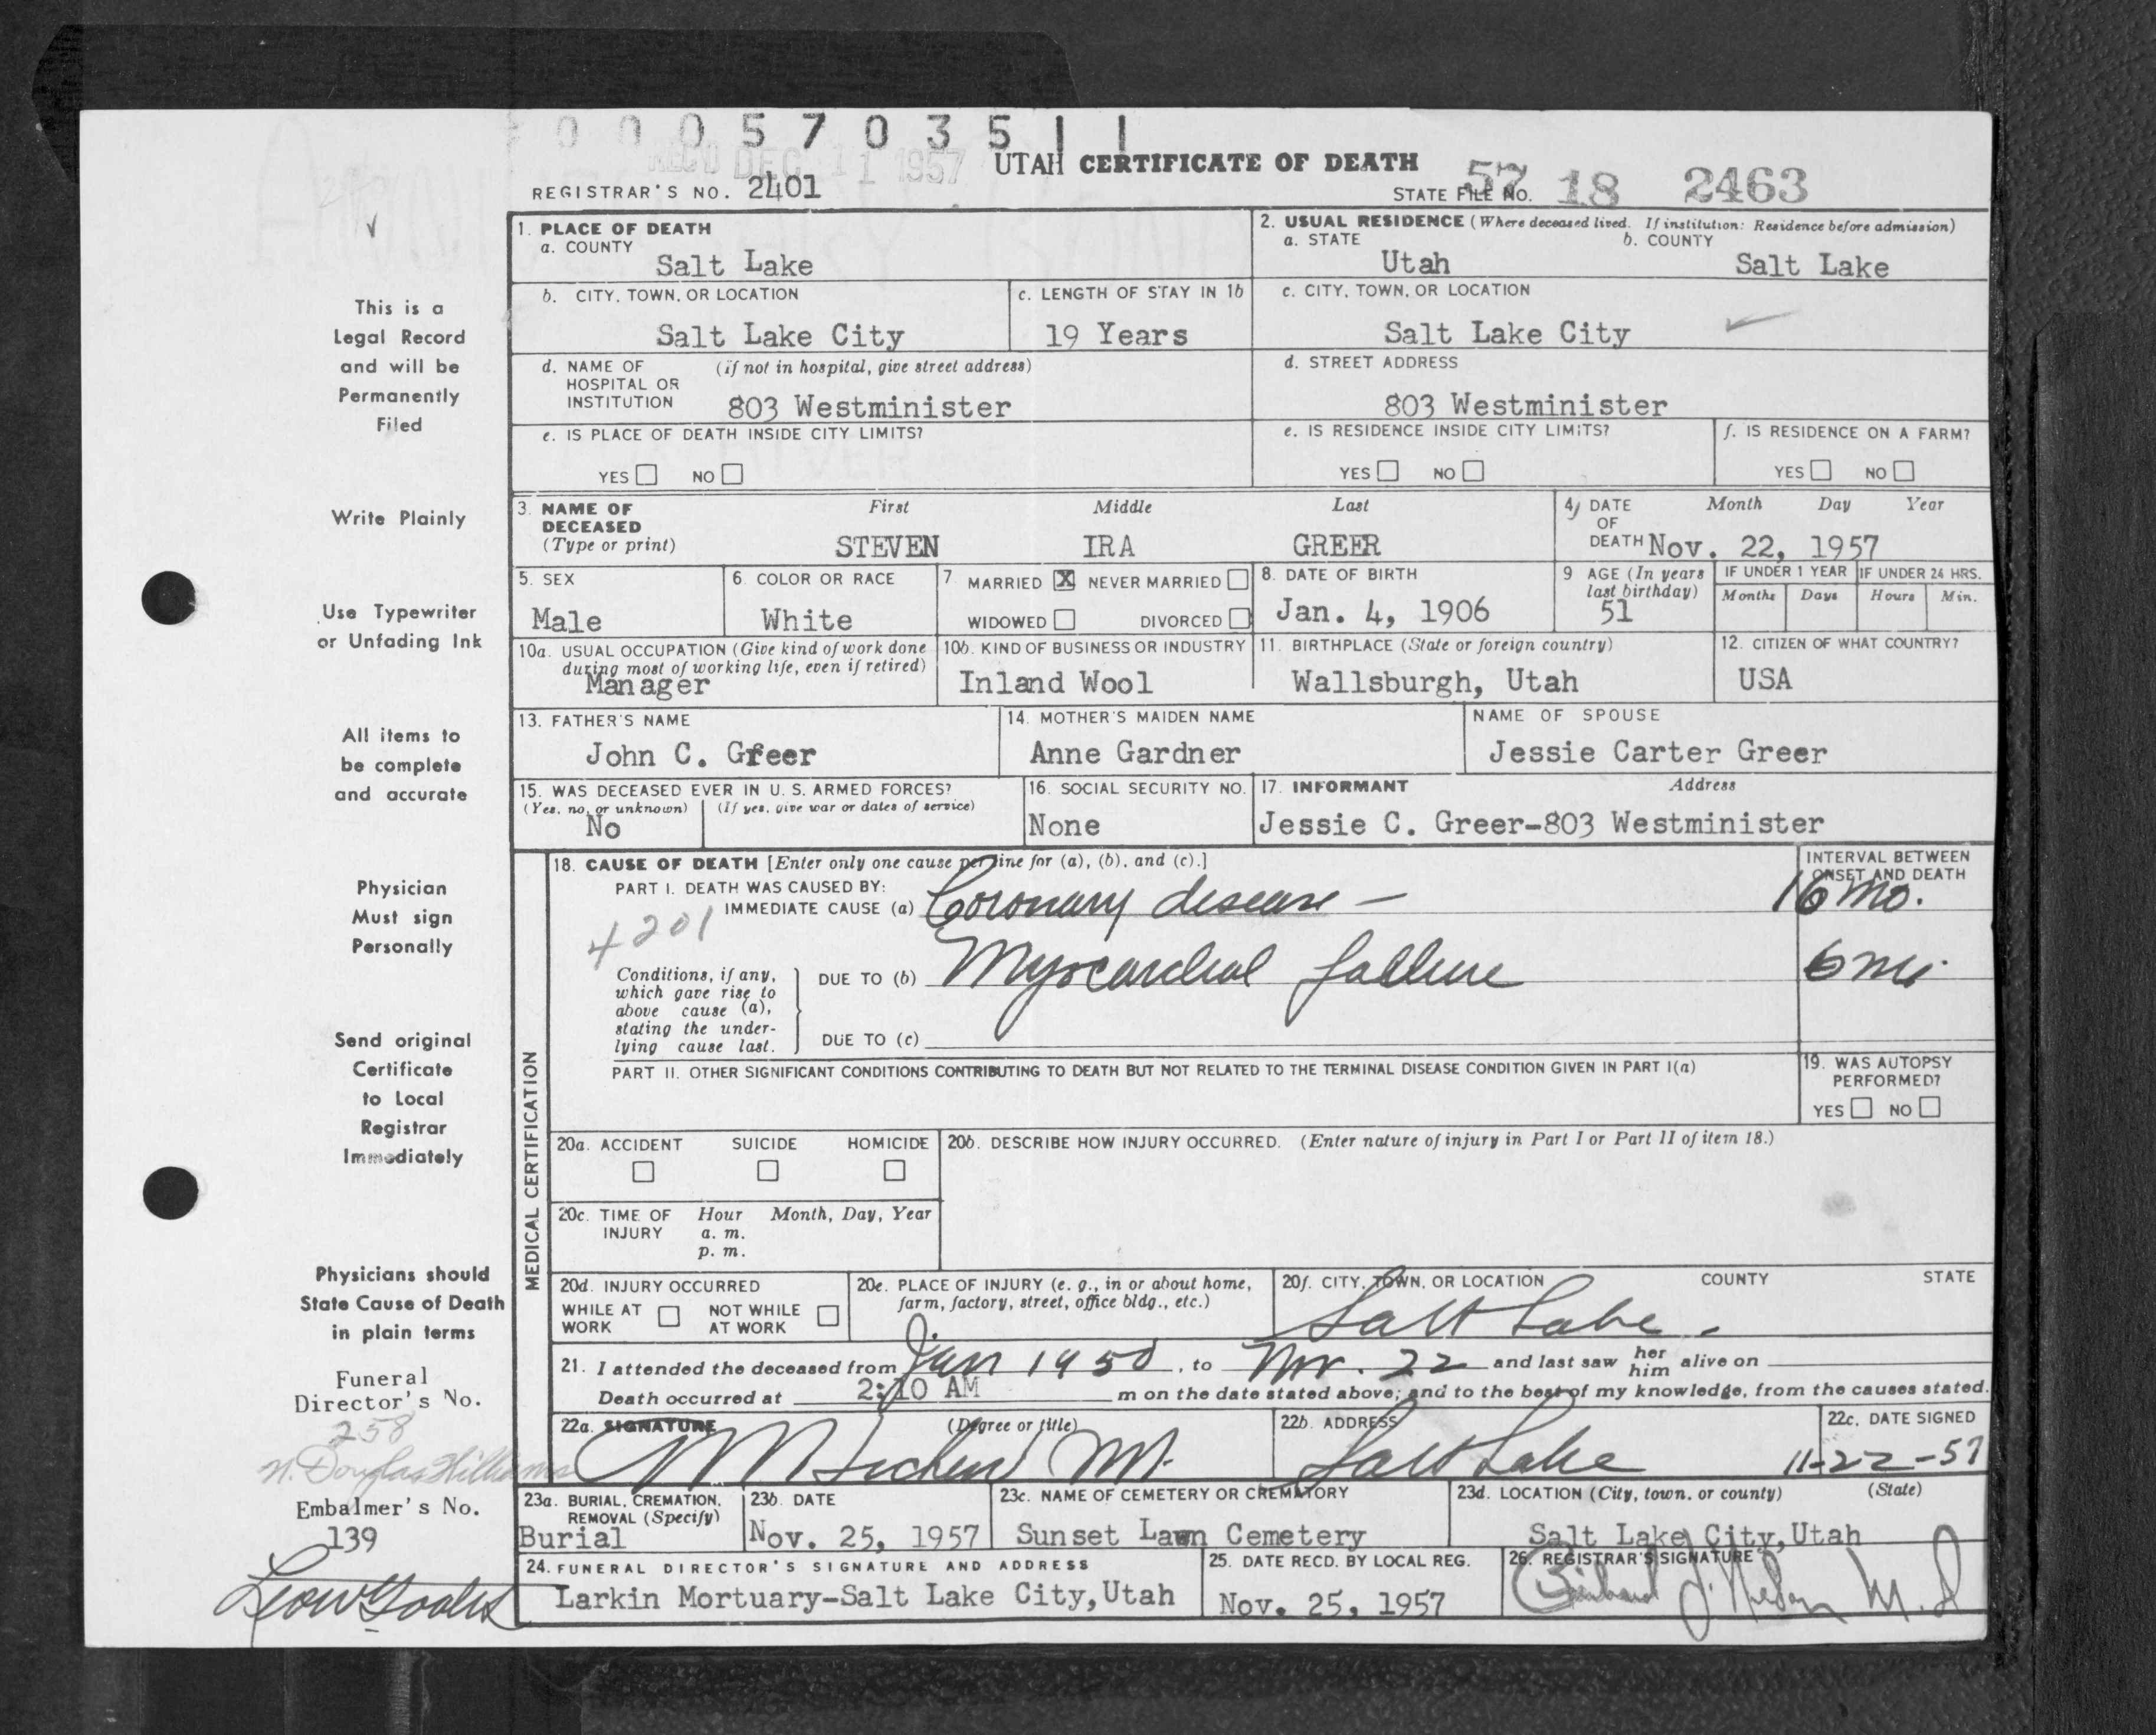 0005703511
REC'D DEC 11 1957
UTAH CERTIFICATE OF DEATH
REGISTRAR'S NO. 2401
STATE FILE NO. 57 18 2463
1. PLACE OF DEATH
a. COUNTY
Salt Lake
2. USUAL RESIDENCE (Where deceased lived. If institution: Residence before admission)
a. STATE b. COUNTY
Utah Salt Lake
b. CITY, TOWN, OR LOCATION
Salt Lake City
c. LENGTH OF STAY IN 1b
19 Years
c. CITY, TOWN, OR LOCATION
Salt Lake City
d. NAME OF HOSPITAL OR INSTITUTION (if not in hospital, give street address)
803 Westminister
d. STREET ADDRESS
803 Westminister
e. IS PLACE OF DEATH INSIDE CITY LIMITS?
YES NO
e. IS RESIDENCE INSIDE CITY LIMITS?
YES NO
f. IS RESIDENCE ON A FARM?
YES NO
3. NAME OF DECEASED (Type or print)
First Middle Last
STEVEN IRA GREER
4. DATE OF DEATH Month Day Year
Nov. 22, 1957
5. SEX
Male
6. COLOR OR RACE
White
7. MARRIED X NEVER MARRIED
WIDOWED DIVORCED
8. DATE OF BIRTH
Jan. 4, 1906
9 AGE (In years last birthday)
51
IF UNDER 1 YEAR
Months Days
IF UNDER 24 HRS.
Hours Min.
10a. USUAL OCCUPATION (Give kind of work done during most of working life, even if retired)
Manager
10b. KIND OF BUSINESS OR INDUSTRY
Inland Wool
11. BIRTHPLACE (State or foreign country)
Wallsburgh, Utah
12. CITIZEN OF WHAT COUNTRY?
USA
13. FATHER'S NAME
John C. Greer
14. MOTHER'S MAIDEN NAME
Anne Gardner
NAME OF SPOUSE
Jessie Carter Greer
15. WAS DECEASED EVER IN U. S. ARMED FORCES?
(Yes, no, or unknown) (If yes, give war or dates of service)
No
16. SOCIAL SECURITY NO.
None
17. INFORMANT Address
Jessie C. Greer-803 Westminister
MEDICAL CERTIFICATION
18. CAUSE OF DEATH [Enter only one cause per line for (a), (b), and (c).]
INTERVAL BETWEEN ONSET AND DEATH
PART I. DEATH WAS CAUSED BY:
IMMEDIATE CAUSE (a) Coronary disease – 16 mo.
4201
Conditions, if any, which gave rise to above cause (a), stating the underlying cause last.
DUE TO (b) Myocardial failure 6 mo.
DUE TO (c)
PART II. OTHER SIGNIFICANT CONDITIONS CONTRIBUTING TO DEATH BUT NOT RELATED TO THE TERMINAL DISEASE CONDITION GIVEN IN PART I(a)
19. WAS AUTOPSY PERFORMED?
YES NO
20a. ACCIDENT SUICIDE HOMICIDE
20b. DESCRIBE HOW INJURY OCCURRED. (Enter nature of injury in Part I or Part II of item 18.)
20c. TIME OF INJURY Hour Month, Day, Year
a. m.
p. m.
20d. INJURY OCCURRED
WHILE AT WORK NOT WHILE AT WORK
20e. PLACE OF INJURY (e. g., in or about home, farm, factory, street, office bldg., etc.)
20f. CITY, TOWN, OR LOCATION COUNTY STATE
Salt Lake.
21. I attended the deceased from Jan 1950, to Nov. 22 and last saw her him alive on
Death occurred at 2:10 AM m on the date stated above; and to the best of my knowledge, from the causes stated.
22a. SIGNATURE (Degree or title)
22b. ADDRESS
Salt Lake
22c. DATE SIGNED
11-22-57
23a. BURIAL, CREMATION, REMOVAL (Specify)
Burial
23b. DATE
Nov. 25, 1957
23c. NAME OF CEMETERY OR CREMATORY
Sunset Lawn Cemetery
23d. LOCATION (City, town, or county) (State)
Salt Lake City, Utah
24. FUNERAL DIRECTOR'S SIGNATURE AND ADDRESS
Larkin Mortuary-Salt Lake City, Utah
25. DATE RECD. BY LOCAL REG.
Nov. 25, 1957
26. REGISTRAR'S SIGNATURE
This is a
Legal Record
and will be
Permanently
Filed
Write Plainly
Use Typewriter
or Unfading Ink
All items to
be complete
and accurate
Physician
Must sign
Personally
Send original
Certificate
to Local
Registrar
Immediately
Physicians should
State Cause of Death
in plain terms
Funeral
Director's No.
258
N. Douglas Williams
Embalmer's No.
139